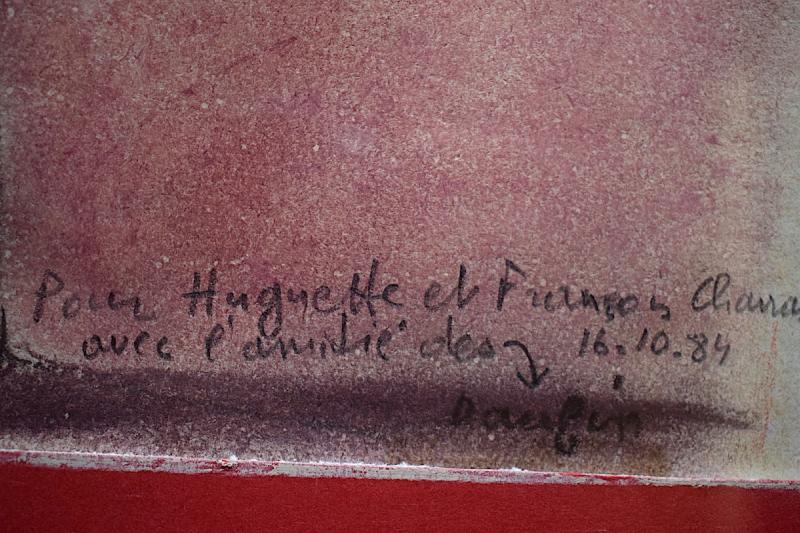 Pour Huguette et François
avec l'amitié des 16.10.84